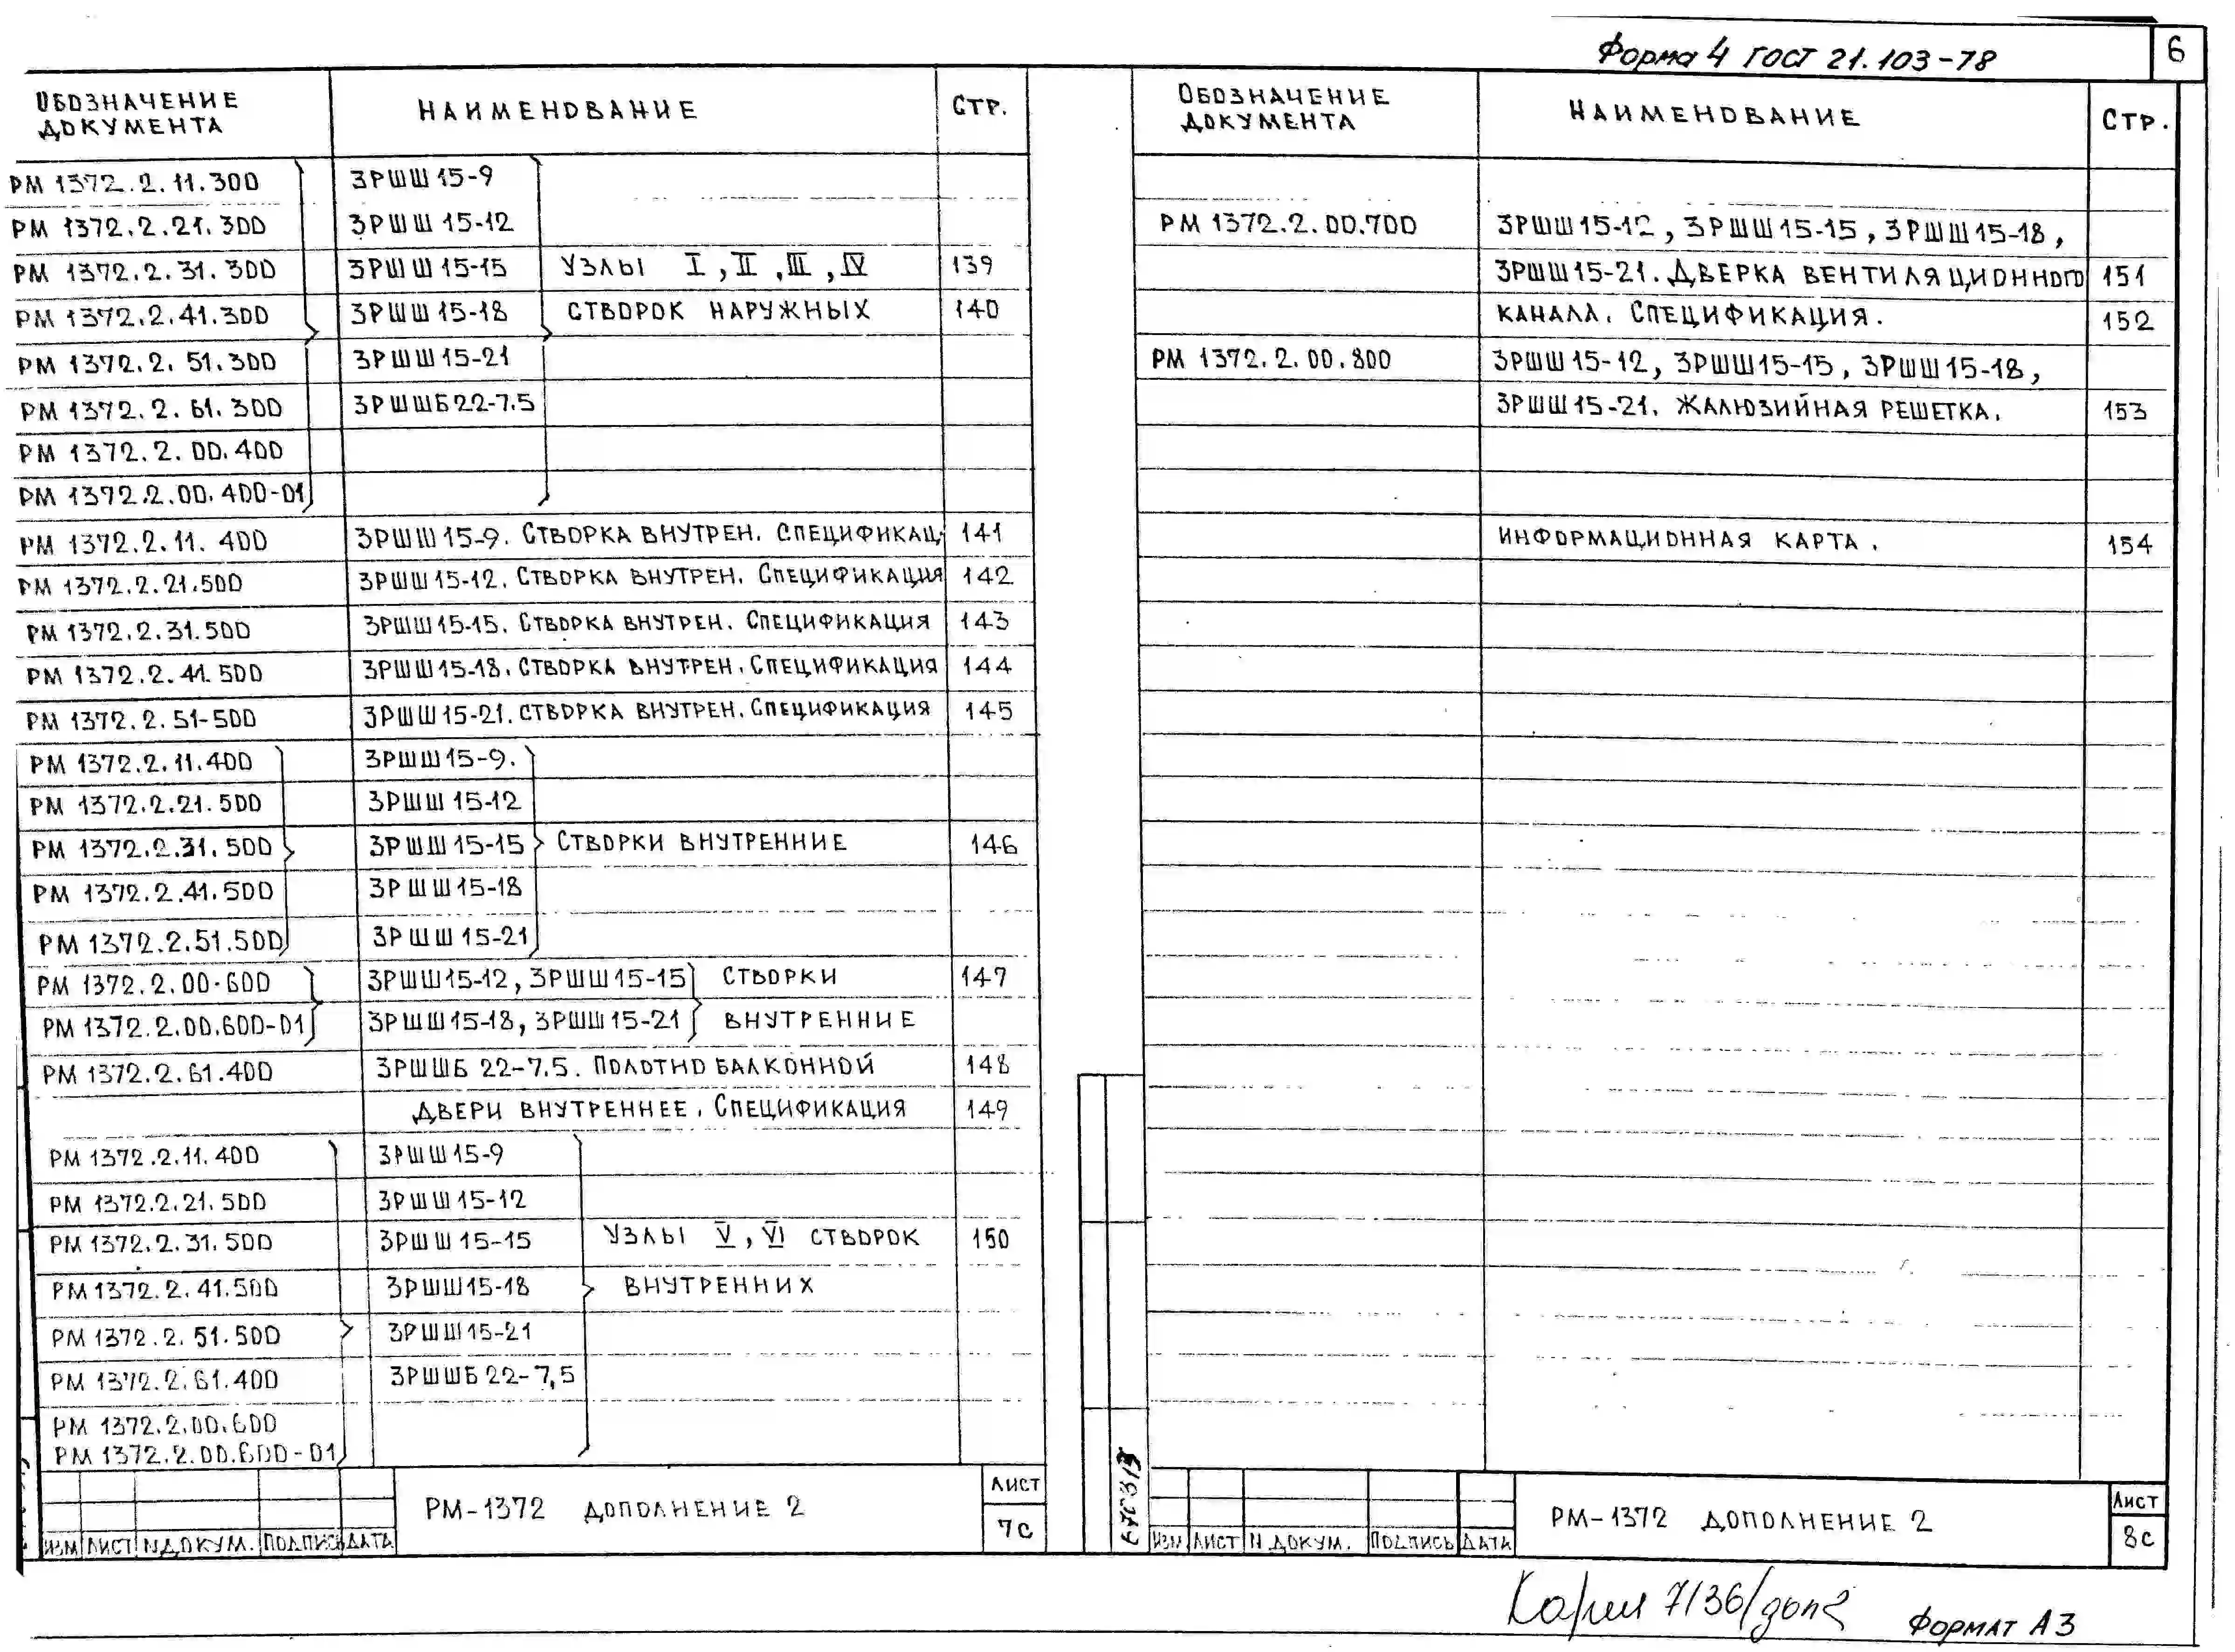 Форма 4 ГОСТ 21.103-78
6
ОБОЗНАЧЕНИЕ ДОКУМЕНТА НАИМЕНОВАНИЕ СТР.
РМ 1372.2.11.300 3РШШ 15-9
РМ 1372.2.21.300 3РШШ 15-12
РМ 1372.2.31.300 3РШШ 15-15 УЗЛЫ I, II, III, IV 139
РМ 1372.2.41.300 3РШШ 15-18 СТВОРОК НАРУЖНЫХ 140
РМ 1372.2.51.300 3РШШ 15-21
РМ 1372.2.61.300 3РШШБ 22-7.5
РМ 1372.2.00.400
РМ 1372.2.00.400-01
РМ 1372.2.11.400 3РШШ 15-9. СТВОРКА ВНУТРЕН. СПЕЦИФИКАЦ. 141
РМ 1372.2.21.500 3РШШ 15-12. СТВОРКА ВНУТРЕН. СПЕЦИФИКАЦИЯ 142
РМ 1372.2.31.500 3РШШ 15-15. СТВОРКА ВНУТРЕН. СПЕЦИФИКАЦИЯ 143
РМ 1372.2.41.500 3РШШ 15-18. СТВОРКА ВНУТРЕН. СПЕЦИФИКАЦИЯ 144
РМ 1372.2.51-500 3РШШ 15-21. СТВОРКА ВНУТРЕН. СПЕЦИФИКАЦИЯ 145
РМ 1372.2.11.400 3РШШ 15-9.
РМ 1372.2.21.500 3РШШ 15-12
РМ 1372.2.31.500 3РШШ 15-15 СТВОРКИ ВНУТРЕННИЕ 146
РМ 1372.2.41.500 3РШШ 15-18
РМ 1372.2.51.500 3РШШ 15-21
РМ 1372.2.00.600 3РШШ 15-12, 3РШШ 15-15 СТВОРКИ 147
РМ 1372.2.00.600-01 3РШШ 15-18, 3РШШ 15-21 ВНУТРЕННИЕ
РМ 1372.2.61.400 3РШШБ 22-7.5. ПОЛОТНО БАЛКОННОЙ 148
ДВЕРИ ВНУТРЕННЕЕ. СПЕЦИФИКАЦИЯ 149
РМ 1372.2.11.400 3РШШ 15-9
РМ 1372.2.21.500 3РШШ 15-12
РМ 1372.2.31.500 3РШШ 15-15 УЗЛЫ V, VI СТВОРОК 150
РМ 1372.2.41.500 3РШШ 15-18 ВНУТРЕННИХ
РМ 1372.2.51.500 3РШШ 15-21
РМ 1372.2.61.400 3РШШБ 22-7,5
РМ 1372.2.00.600
РМ 1372.2.00.600-01
РМ-1372 ДОПОЛНЕНИЕ 2
ЛИСТ
7с
ИЗМ ЛИСТ N ДОКУМ. ПОДПИСЬ ДАТА
ОБОЗНАЧЕНИЕ ДОКУМЕНТА НАИМЕНОВАНИЕ СТР.
РМ 1372.2.00.700 3РШШ 15-12, 3РШШ 15-15, 3РШШ 15-18,
3РШШ 15-21. ДВЕРКА ВЕНТИЛЯЦИОННОГО 151
КАНАЛА. СПЕЦИФИКАЦИЯ. 152
РМ 1372.2.00.800 3РШШ 15-12, 3РШШ 15-15, 3РШШ 15-18,
3РШШ 15-21. ЖАЛЮЗИЙНАЯ РЕШЕТКА. 153
ИНФОРМАЦИОННАЯ КАРТА. 154
РМ-1372 ДОПОЛНЕНИЕ 2
ЛИСТ
8с
ИЗМ ЛИСТ N ДОКУМ. ПОДПИСЬ ДАТА
7136/доп2
ФОРМАТ А3